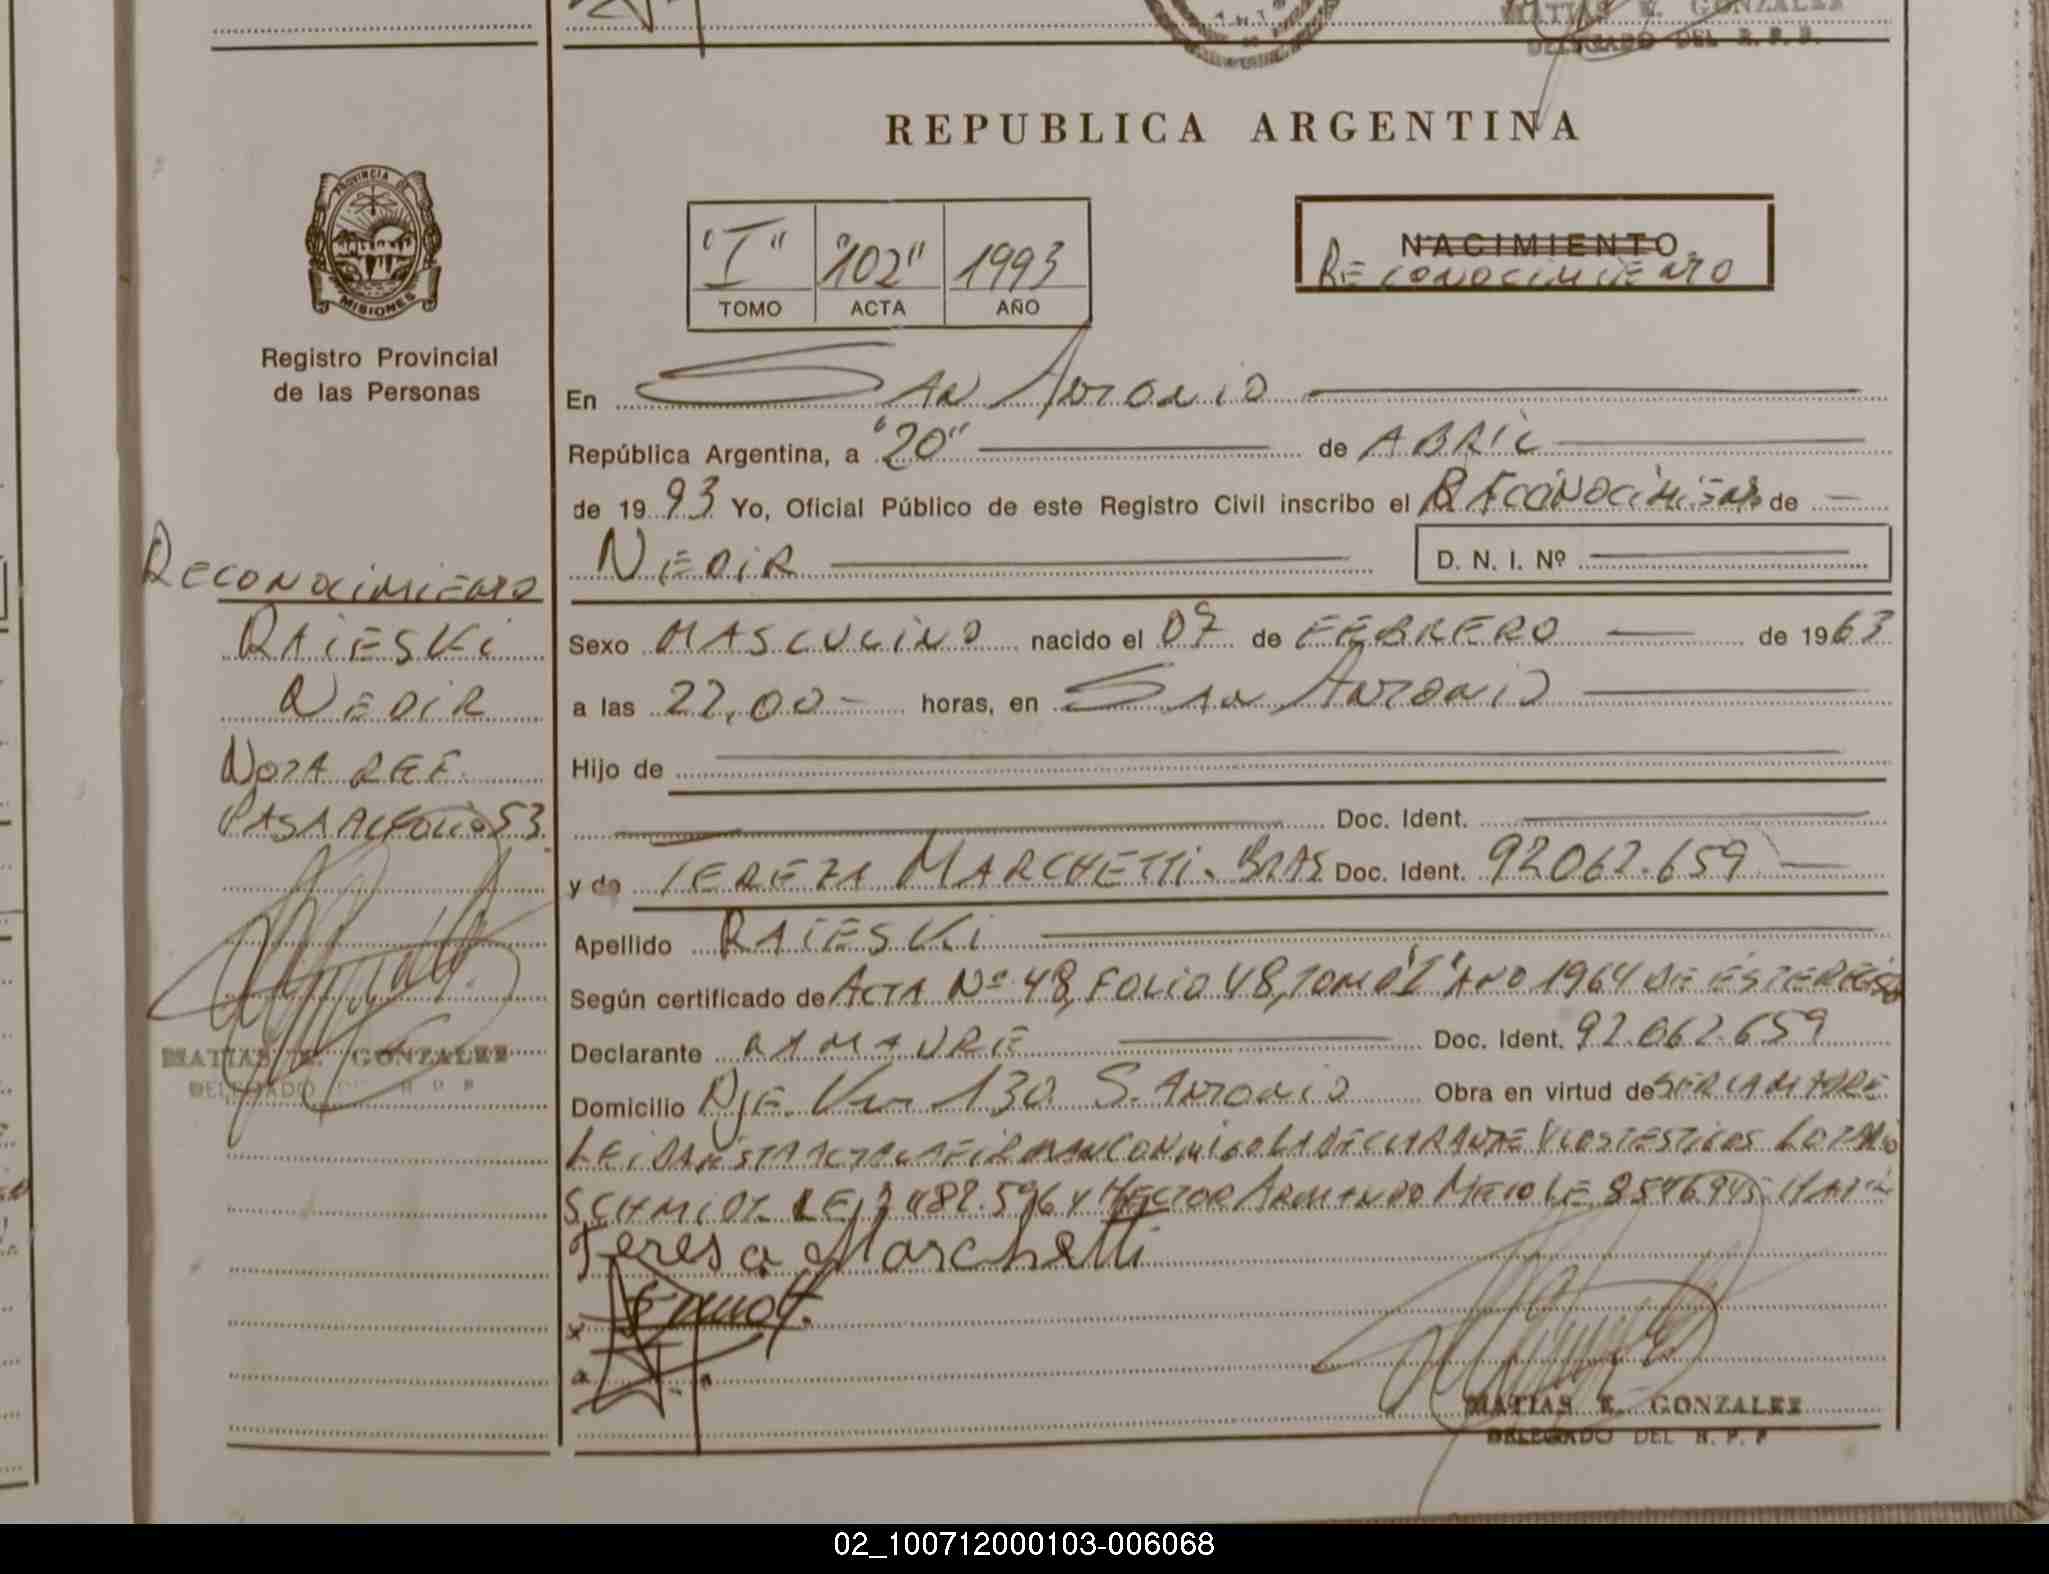 MATIAS E. GONZALEZ
DELEGADO DEL R. P. P.
REPUBLICA ARGENTINA
PROVINCIA DE
MISIONES
Registro Provincial
de las Personas
"I" "102" 1993
TOMO ACTA AÑO
NACIMIENTO
RECONOCIMIENTO
En SAN ANTONIO
República Argentina, a "20" de ABRIL
de 1993 Yo, Oficial Público de este Registro Civil inscribo el RECONOCIMIENTO de
NEDIR D. N. I. Nº
RECONOCIMIENTO
RAIESKI
NEDIR
NOTA REF.
PASA AL FOLIO 53.
MATIAS E. GONZALEZ
DELEGADO R P P
Sexo MASCULINO nacido el 07 de FEBRERO de 1963
a las 22,00 horas, en SAN ANTONIO
Hijo de
Doc. Ident.
y de TEREZA MARCHETTI. BRAS Doc. Ident. 92062.659
Apellido RAIESKI
Según certificado de ACTA Nº 48, FOLIO 48, TOMO "I" AÑO 1964 DE ESTE
Declarante LA MADRE Doc. Ident. 92.062.659
Domicilio PJE. 130 S. ANTONIO Obra en virtud de SER LA MADRE
LEIDA ESTA ACTA LA FIRMAN CONMIGO LA DECLARANTE Y LOS TESTIGOS
SCHMIDT LE 482.596 Y HECTOR ARMANDO LE 8546945
Teresa Marchetti
MATIAS E. GONZALEZ
DELEGADO DEL R. P. P
02_100712000103-006068